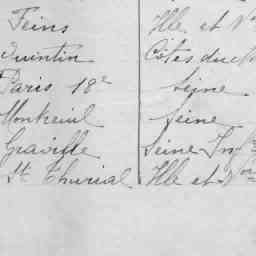 Feins Ille et V
Quintin Côtes du N
Paris 18e Seine
Montreuil Seine
Graville Seine Infre
St Thurial Ille et Vne